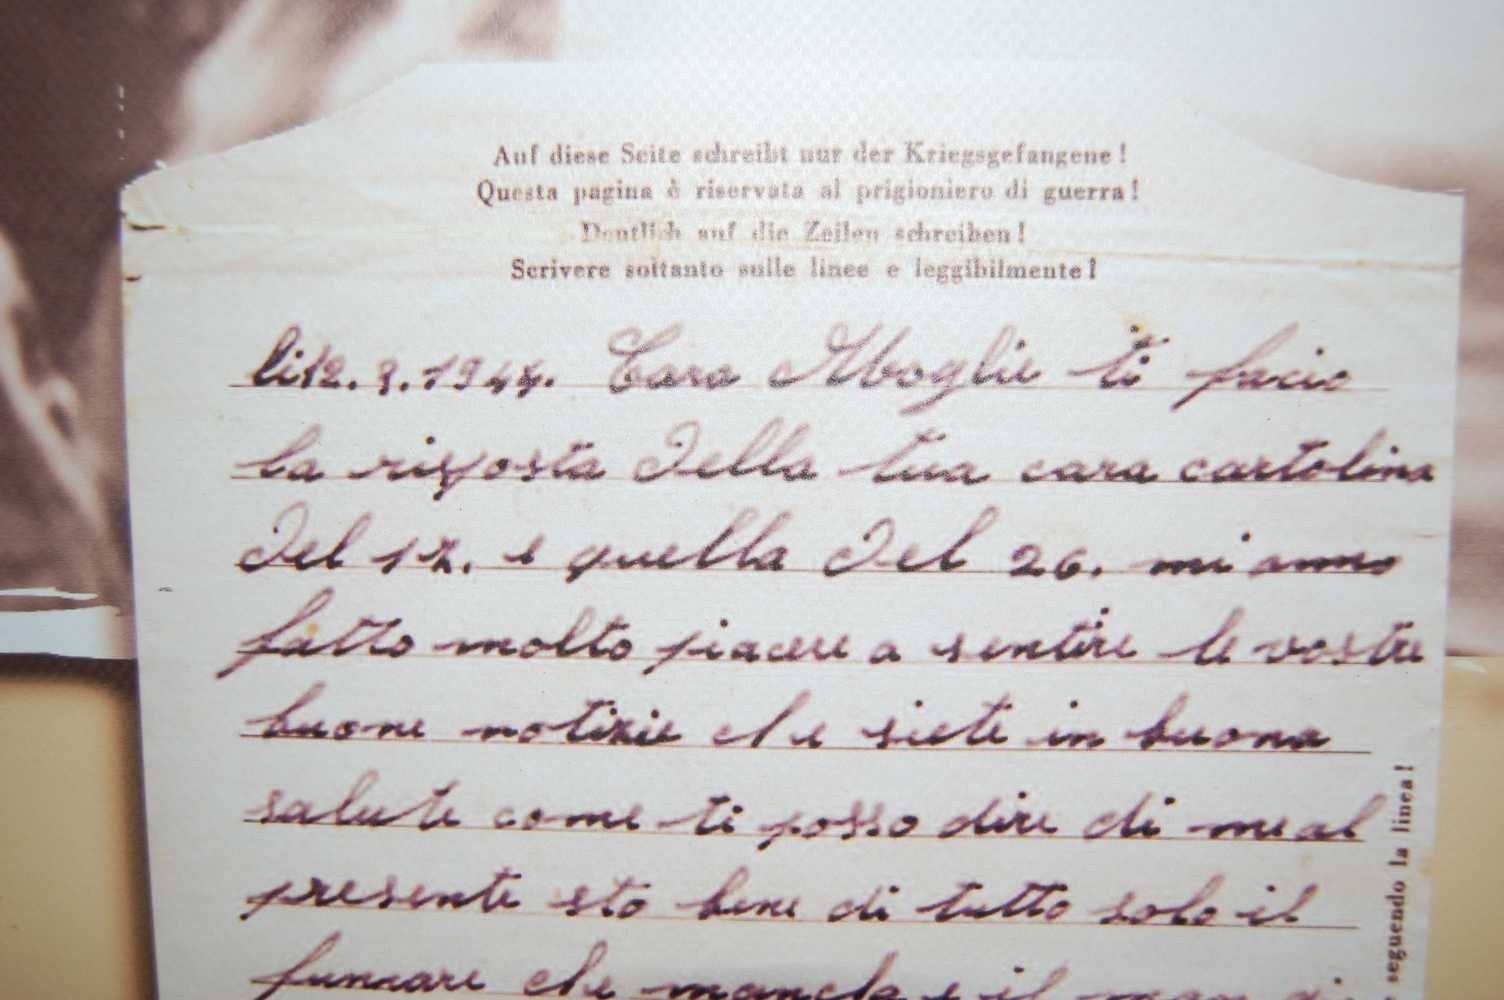 Auf diese Seite schreibt nur der Kriegsgefangene!
Questa pagina è riservata al prigioniero di guerra!
Deutlich auf die Zeilen schreiben!
Scrivere soltanto sulle linee e leggibilmente!
li 12.3.1944. Cara Moglie ti facio
la risposta della tua cara cartolina
del 12. e quella del 26. mi anno
fatto molto piacere a sentire le vostre
buone notizie che siete in buona
salute come ti posso dire di me al
presente sto bene di tutto solo il
fumare che mancha e il
seguendo la linea!